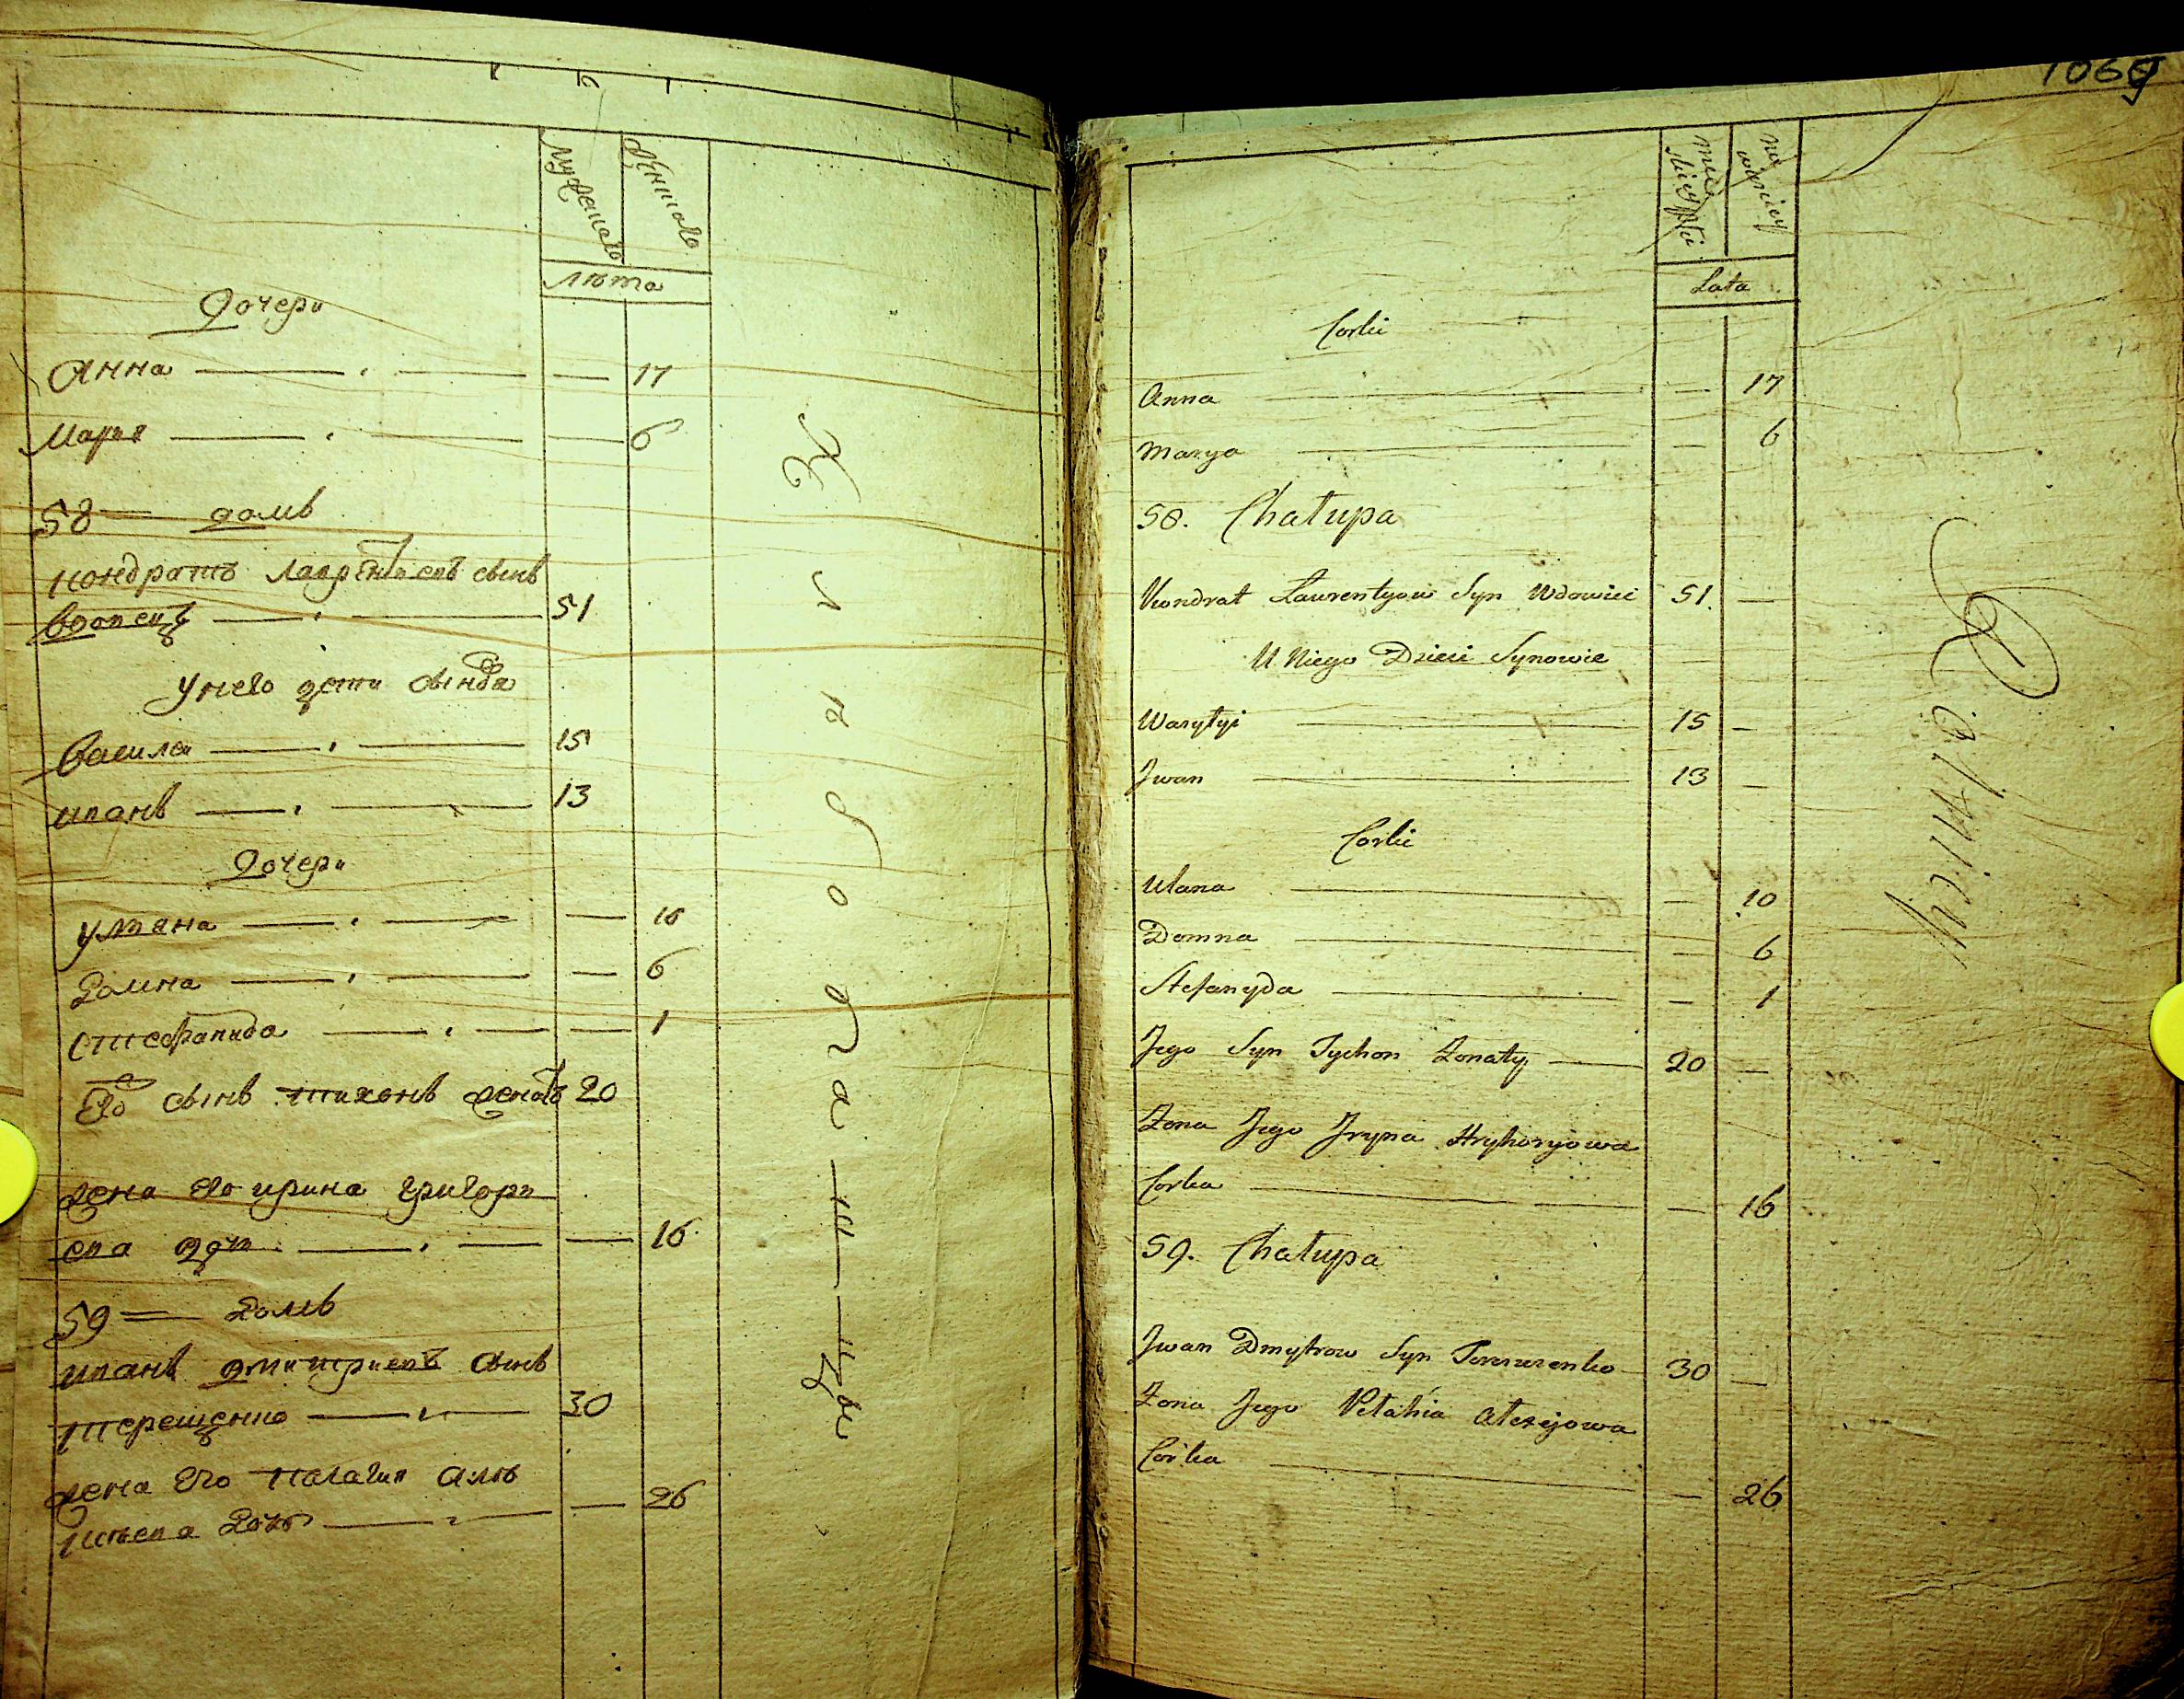 мужеска
женска
лѣта
Дочери
Анна 17
Мария 6
58 домъ
кондратъ лаврентиевъ сынъ
вдовецъ 51
у него дети сыновя
василеи 15
иванъ 13
Дочери
улияна 10
Домна 6
стефанида 1
Его сынъ тихонъ женатъ 20
жена его ирина григори
ева дочь 16
59 Домъ
иванъ дмитриевъ сынъ
терещенко 30
жена его палагия алѣ
ксѣева дочь 26
1069
Lata
Corki
Anna — 17
Marya — 6
58. Chałupa
Kondrat Laurentyow Syn Wdowiec 51. —
U Niego Dzieci Synowie
Wasyłyi 15 —
Jwan 13 —
Corki
Ulana — 10
Domna — 6
Stefanyda — 1
Jego Syn Tychon Żonaty 20 —
Żona Jego Jryna Hryhoryowa
Corka — 16
59. Chałupa
Jwan Dmytrow Syn Tereszczenko 30 —
Żona Jego Pełahia Alexijowa
Corka — 26
Rolnicy